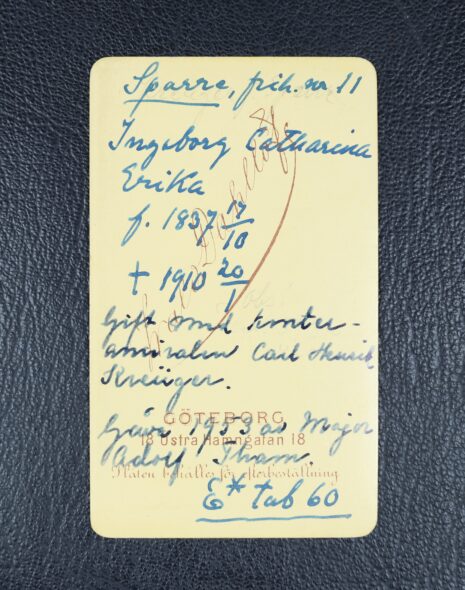 Sparre, frih. nr 11
Ingeborg Catharina
Erika
f. 1837 17/10
† 1910 20/1
Gift med konter-
amiralen Carl Henrik
Kreüger.
GÖTEBORG
Gåva 1953 av Major
18 Östra Hamngatan 18
Adolf Tham.
Plåten behålles för efterbeställning
E* tab 60